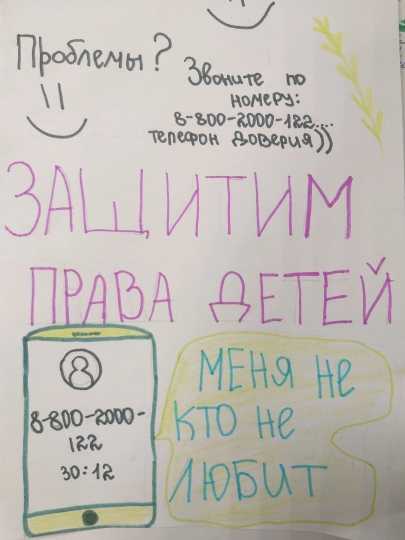 Проблемы?
Звоните по
номеру:
8-800-2000-122....
телефон доверия))
ЗАЩИТИМ
ПРАВА ДЕТЕЙ
8-800-2000-
122
30:12
МЕНЯ НЕ
КТО НЕ
ЛЮБИТ